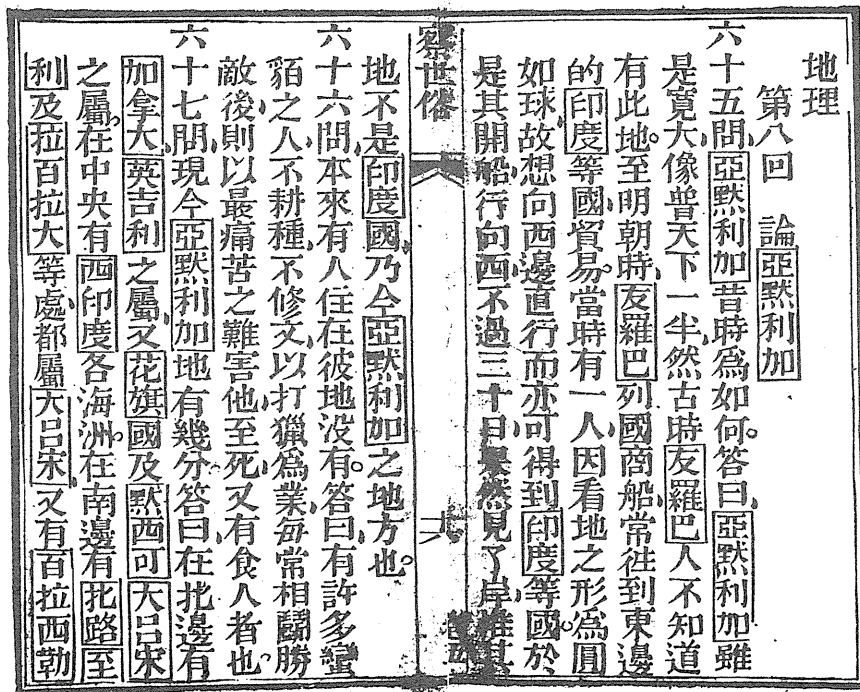 地理
第八回　論亞默利加
六十五問、亞默利加昔時爲如何。答曰、亞默利加雖
是寬大、像普天下一半、然古時友羅巴人不知道
有此地。至明朝時、友羅巴列國商船常徃到東邊
的印度等國貿易。當時有一人、因看地之形爲圓
如球、故想向西邊直行而亦可得到印度等國。於
是其開船行向西、不過三十日、果然見了岸、惟其
察世俗
地不是印度國、乃今亞默利加之地方也。
六十六問、本來有人住在彼地没有。答曰、有許多蠻
貊之人、不耕種、不修文、以打獵爲業、每常相鬪、勝
敵後、則以最痛苦之難害他至死、又有食人者也。
六十七問、現今亞默利加地有幾分。答曰、在北邊有
加拿大、英吉利之屬、又花旗國及默西可大呂宋
之屬。在中央有西印度各海洲。在南邊有北路至
利及拉百拉大等處都屬大呂宋、又有百拉西勒